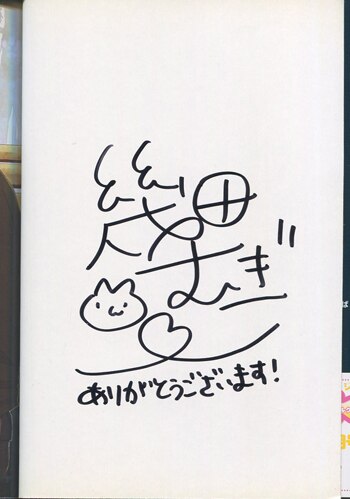 幾田
むぎ
ありがとうございます!